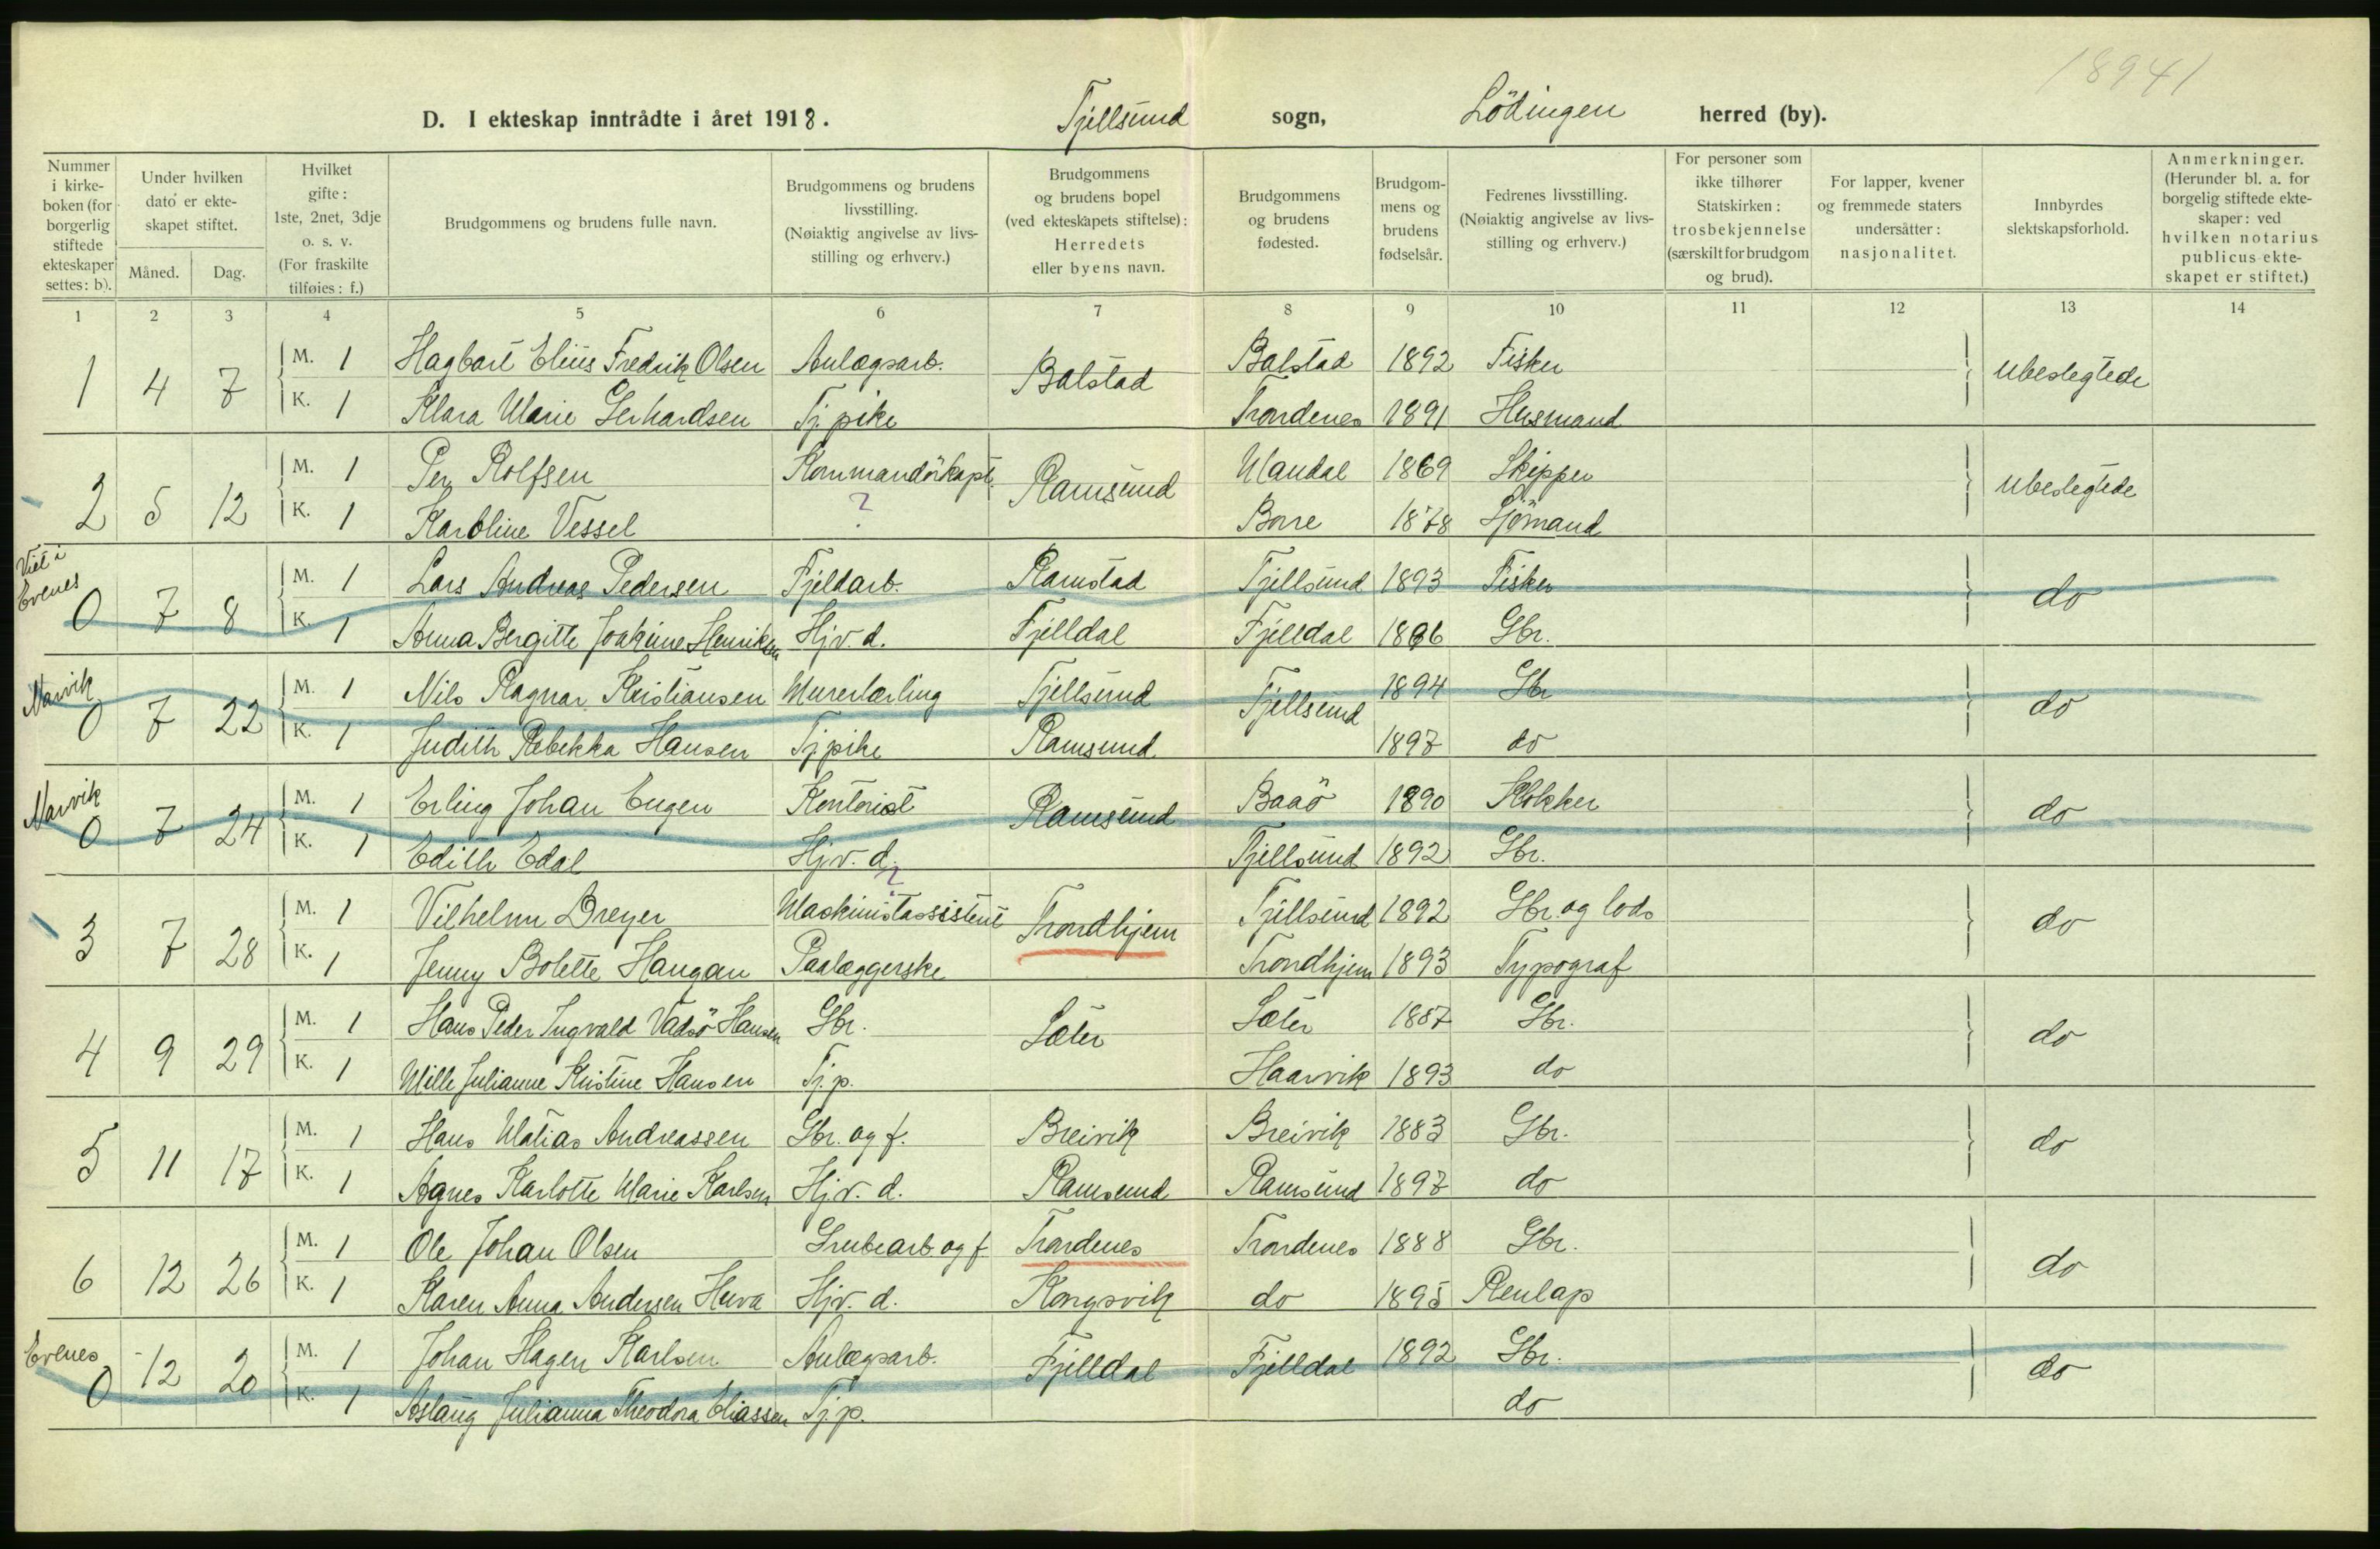 18941
D. I ekteskap inntrådte i året 1918. Tjellsund sogn, Lödingen herred (by).
Nummer i kirkeboken (for borgerlig stiftede ekteskaper settes: b).
Under hvilken dato er ekteskapet stiftet.
Måned. Dag.
Hvilket gifte: 1ste, 2net, 3dje o. s. v. (For fraskilte tilføies: f.)
Brudgommens og brudens fulle navn.
Brudgommens og brudens livsstilling. (Nøiaktig angivelse av livsstilling og erhverv.)
Brudgommens og brudens bopel (ved ekteskapets stiftelse): Herredets eller byens navn.
Brudgommens og brudens fødested.
Brudgommens og brudens fødselsår.
Fedrenes livsstilling. (Nøiaktig angivelse av livsstilling og erhverv.)
For personer som ikke tilhører Statskirken: trosbekjennelse (særskilt for brudgom og brud).
For lapper, kvener og fremmede staters undersåtter: nasjonalitet.
Innbyrdes slektskapsforhold.
Anmerkninger. (Herunder bl. a. for borgelig stiftede ekteskaper: ved hvilken notarius publicus ekteskapet er stiftet.)
1 2 3 4 5 6 7 8 9 10 11 12 13 14
1 4 7 M. 1 Hagbart Elius Fredrik Olsen Anlægsarb. Balstad Balstad 1892 Fisker ubeslegtede
K. 1 Klara Marie Gerhardsen Tj. pike Trondenes 1891 Husmand
2 5 12 M. 1 Per Rolfsen Kommandörkapt. Ramsund Mandal 1869 Skipper ubeslegtede
K. 1 Karoline Vessel ? Borre 1878 Sjömand
Viet i Evenes
0 7 8 M. 1 Lars Andreas Pedersen Fjeldarb. Ramstad Tjellsund 1893 Fisker do
K. 1 Anna Bergitte Joakime Henriksen Hjv. d. Fjelldal Fjelldal 1896 Gbr.
Narvik
0 7 22 M. 1 Nils Ragnar Kristiansen Murerlærling Tjellsund Tjellsund 1894 Gbr do
K. 1 Judith Rebekka Hansen Tj pike Ramsund 1897 do
Narvik
0 7 24 M. 1 Erling Johan Eugen Kontorist Ramsund Baaö 1890 Klokker do
K. 1 Edith Edal Hjv. d. Tjellsund 1892 Gbr.
?
3 7 28 M. 1 Vilhelm Dreyer Maskinistassistent Trondhjem Tjellsund 1892 Gbr. og lods do
K. 1 Jenny Bolette Haugan Paalæggerske Trondhjem 1893 Typograf
4 9 29 M. 1 Hans Peder Ingvald Vadsö Hansen Gbr. Sæter Sæter 1887 Gbr. do
K. 1 Mille Julianne Kristine Hansen Tj. p. Haarvik 1893 do
5 11 17 M. 1 Hans Matias Andreassen Gbr. og f. Breivik Breivik 1883 Gbr. do
K. 1 Agnes Karlotte Marie Karlsen Hjv. d. Ramsund Ramsund 1897 do
6 12 26 M. 1 Ole Johan Olsen Grubearb. og f. Trondenes Trondenes 1888 Gbr. do
K. 1 Karen Anna Andersen Huva Hjv. d. Kongsvik do 1895 Renlap
Evenes
0 12 20 M. 1 Johan Hagen Karlsen Anlægsarb. Fjelldal Fjelldal 1892 Gbr. do
K. 1 Aslaug Julianna Theodora Eliassen Tj. p. do